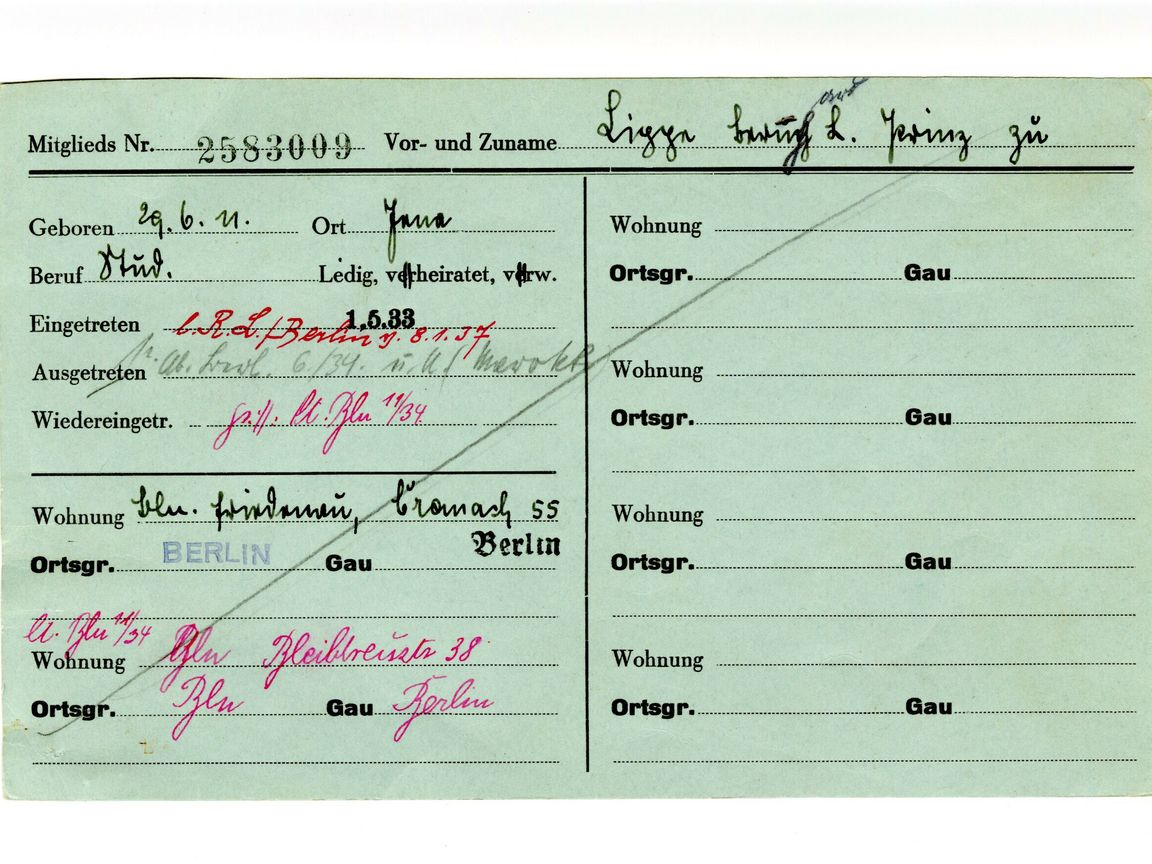 Mitglieds Nr. 2583009 Vor- und Zuname Lippe Bernh L. Prinz zu
Geboren 29.6.11. Ort Jena
Beruf Stud. Ledig, verheiratet, verw.
Eingetreten 1.5.33
l. R.L./Berlin v. 8.1.37
Ausgetreten 6/34. u. Marokk
Wiedereingetr. lt. Bln 11/34
Wohnung Bln. Friedenau, Cranach 55
Ortsgr. BERLIN Gau Berlin
lt. Bln 11/34
Wohnung Bln Bleibtreustr 38
Ortsgr. Bln Gau Berlin
Wohnung
Ortsgr. Gau
Wohnung
Ortsgr. Gau
Wohnung
Ortsgr. Gau
Wohnung
Ortsgr. Gau